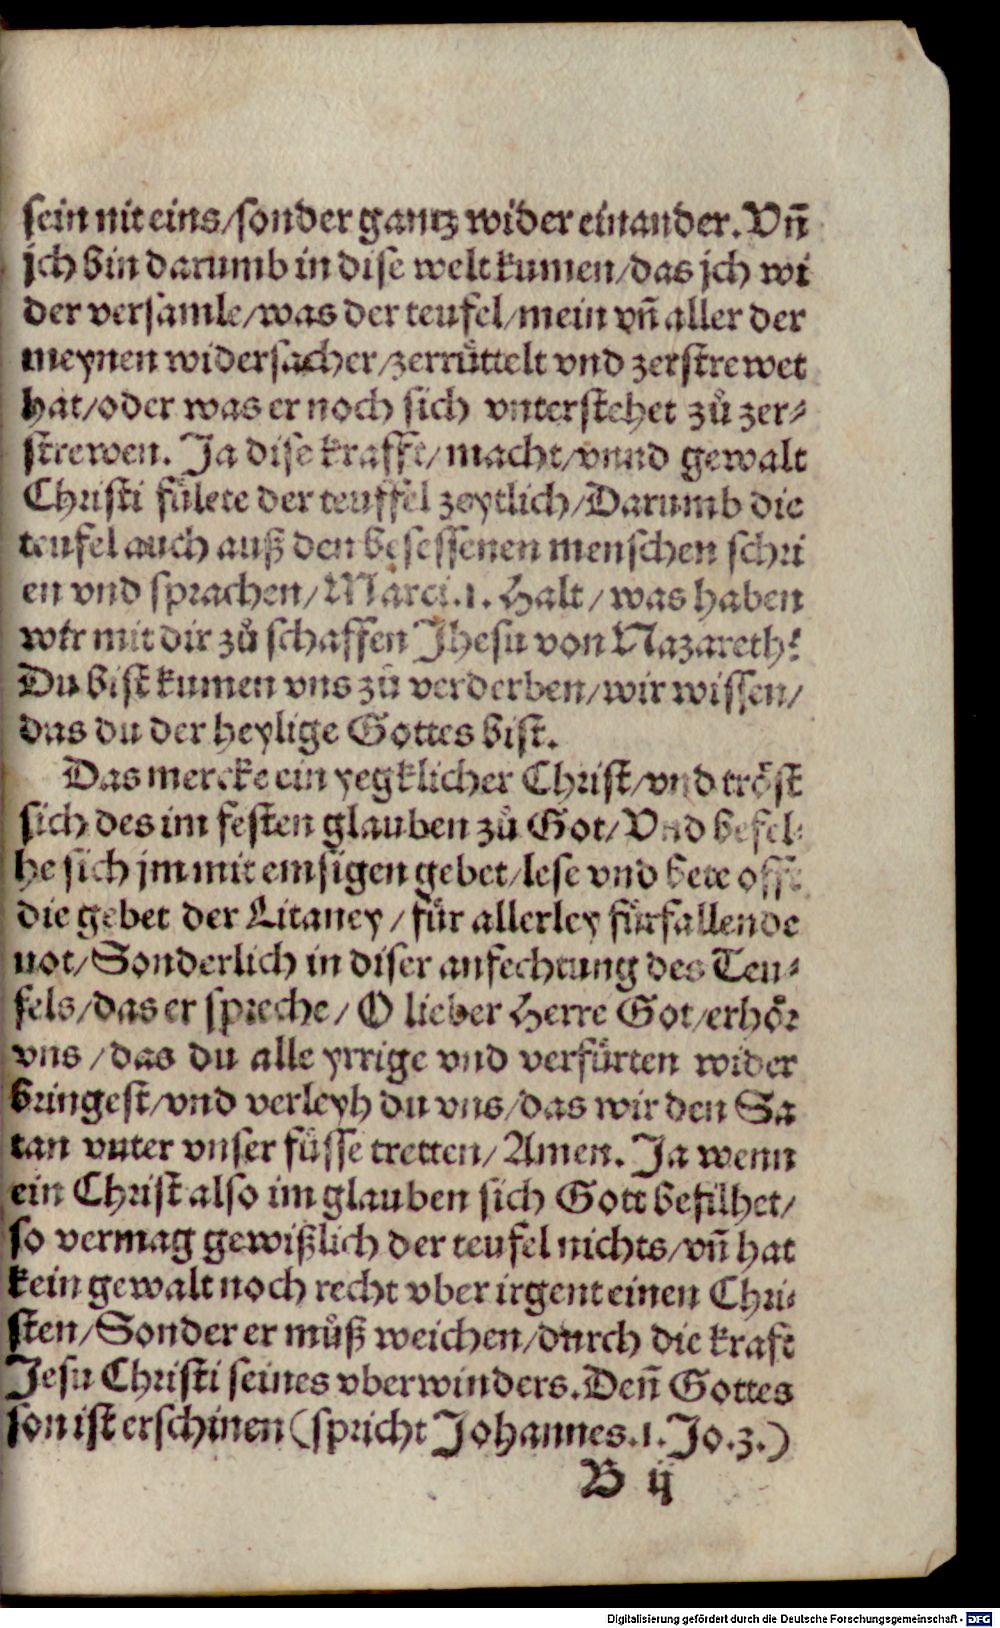 sein nit eins/sonder gantz wider einander. Vñ
ich bin darumb in dise welt kumen/das jch wi
der versamle/was der teufel/mein vñ aller der
meynen widersacher/zerrüttelt vnd zerstrewet
hat/oder was er noch sich vnterstehet zů zer-
strewen. Ja dise krafft/macht/vnnd gewalt
Christi fülete der teuffel zeytlich/Darumb die
teufel auch auß den besessenen menschen schri
en vnd sprachen/Marci.1. Halt/was haben
wir mit dir zů schaffen Jhesu von Nazareth?
Du bist kumen vns zů verderben/wir wissen/
das du der heylige Gottes bist.
Das mercke ein yegklicher Christ/vnd tröst
sich des im festen glauben zů Got/Vnd befel-
he sich jm mit emsigen gebet/lese vnd bete offt
die gebet der Litaney/für allerley fürfallende
not/Sonderlich in diser anfechtung des Teu-
fels/das er spreche/O lieber Herre Got/erhör
vns/das du alle yrrige vnd verfürten wider
bringest/vnd verleyh du vns/das wir den Sa
tan vnter vnser füsse tretten/Amen. Ja wenn
ein Christ also im glauben sich Gott befilhet/
so vermag gewißlich der teufel nichts/vñ hat
kein gewalt noch recht vber irgent einen Chri-
sten/Sonder er můß weichen/durch die kraft
Jesu Christi seines vberwinders. Deñ Gottes
son ist erschinen (spricht Johannes.1.Jo.3.)
B ij
Digitalisierung gefördert durch die Deutsche Forschungsgemeinschaft - DFG